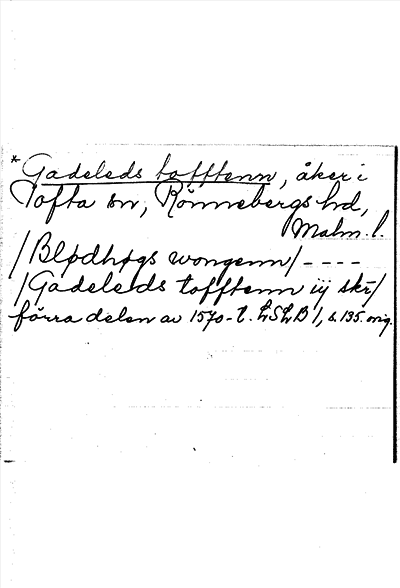 *Gadeleds tofftenn, åker i
Tofta sn, Rönnebergs hd,
Malm. l.
/Blødhøgs wongenn/ - - - -
/Gadeleds tofftenn iij skr/
förra delen av 1570-t. LSLB 1, s. 135. orig.